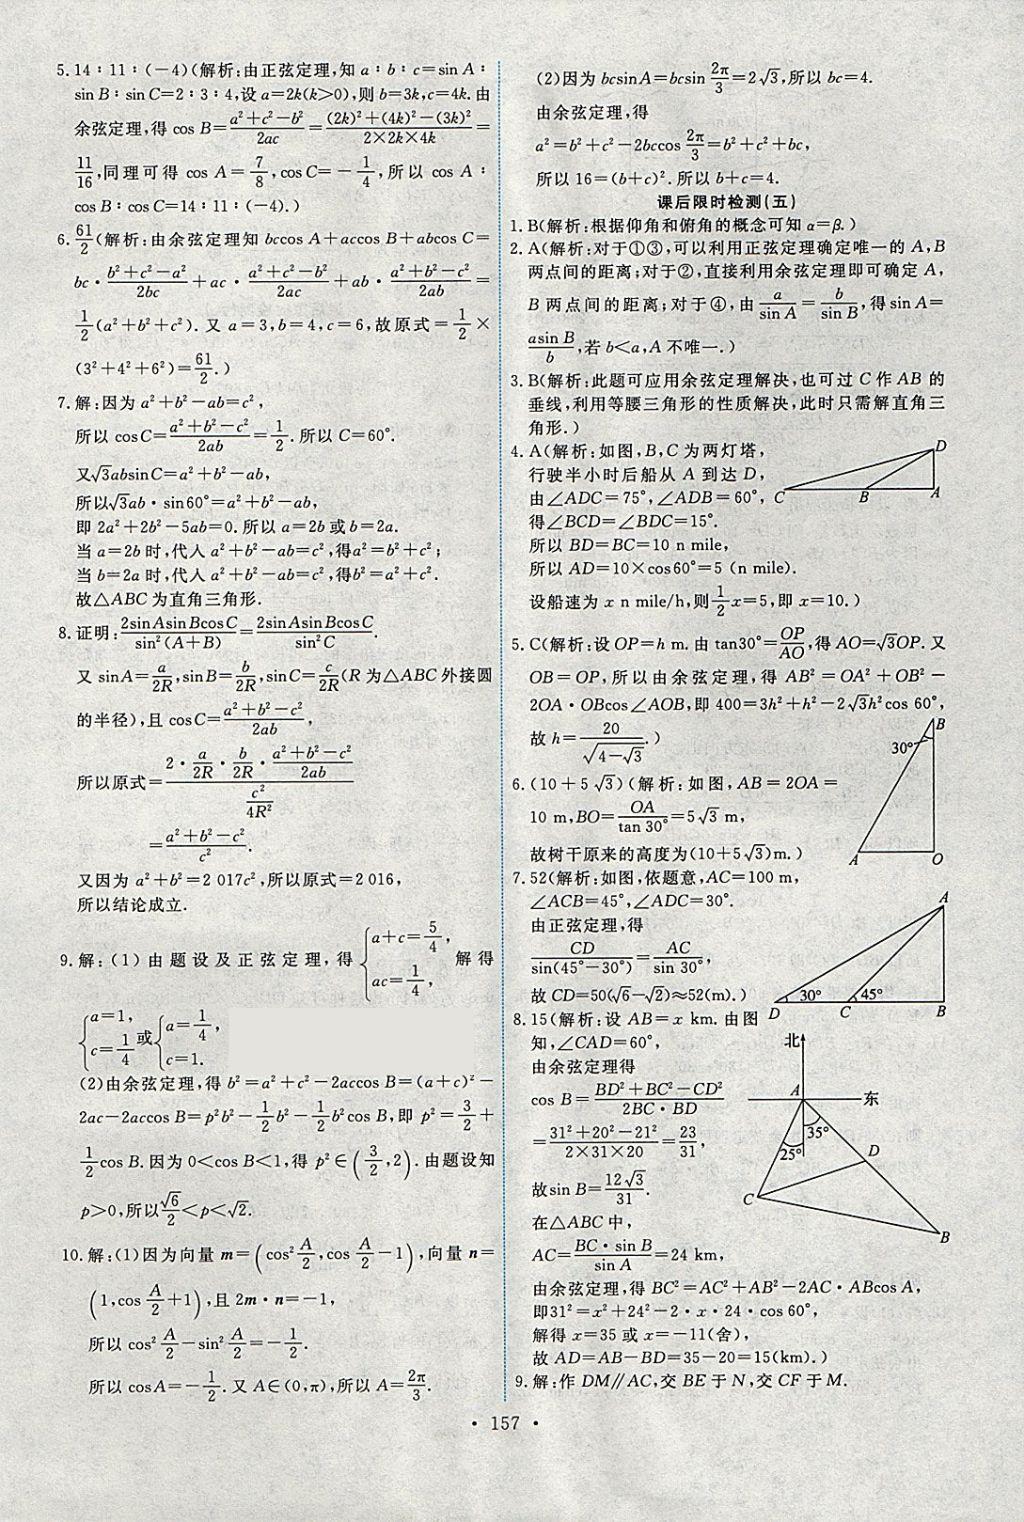 5. 14∶11∶(−4)(解析:由正弦定理,知 a∶b∶c=sin A∶
sin B∶sin C=2∶3∶4,设 a=2k(k>0),则 b=3k,c=4k. 由
余弦定理,得 cos B=(a²+c²−b²)/(2ac)=((2k)²+(4k)²−(3k)²)/(2×2k×4k)=
11/16,同理可得 cos A=7/8,cos C=−1/4,所以 cos A∶
cos B∶cos C=14∶11∶(−4).)
6. 61/2(解析:由余弦定理知 bccos A+accos B+abcos C=
bc·(b²+c²−a²)/(2bc)+ac·(a²+c²−b²)/(2ac)+ab·(a²+b²−c²)/(2ab)=
1/2(a²+b²+c²). 又 a=3,b=4,c=6,故原式=1/2×
(3²+4²+6²)=61/2.)
7. 解:因为 a²+b²−ab=c²,
所以 cosC=(a²+b²−c²)/(2ab)=1/2. 所以 C=60°.
又√3absinC=a²+b²−ab,
所以√3ab·sin60°=a²+b²−ab,
即 2a²+2b²−5ab=0. 所以 a=2b 或 b=2a.
当 a=2b 时,代入 a²+b²−ab=c²,得a²=b²+c²;
当 b=2a 时,代入 a²+b²−ab=c²,得b²=a²+c².
故△ABC 为直角三角形.
8. 证明:(2sinAsinBcosC)/(sin²(A+B))=(2sinAsinBcosC)/(sin²C).
又 sinA=a/(2R),sinB=b/(2R),sinC=c/(2R)(R 为△ABC 外接圆
的半径),且 cosC=(a²+b²−c²)/(2ab),
所以原式=(2·a/(2R)·b/(2R)·(a²+b²−c²)/(2ab))/(c²/(4R²))
=(a²+b²−c²)/c².
又因为 a²+b²=2 017c²,所以原式=2 016,
所以结论成立.
9. 解:(1)由题设及正弦定理,得{a+c=5/4, ac=1/4, 解得
{a=1, c=1/4 或{a=1/4, c=1.
(2)由余弦定理,得 b²=a²+c²−2accos B=(a+c)²−
2ac−2accos B=p²b²−1/2b²−1/2b²cos B,即 p²=3/2+
1/2cos B. 因为 0<cos B<1,得 p²∈(3/2,2). 由题设知
p>0,所以√6/2<p<√2.
10. 解:(1)因为向量 m=(cos²A/2,cos A/2−1),向量 n=
(1,cos A/2+1),且 2m·n=−1,
所以 cos²A/2−sin²A/2=−1/2.
所以 cosA=−1/2. 又 A∈(0,π),所以 A=2π/3.
(2)因为 bcsinA=bcsin2π/3=2√3,所以 bc=4.
由余弦定理,得
a²=b²+c²−2bccos2π/3=b²+c²+bc,
所以 16=(b+c)². 所以 b+c=4.
课后限时检测(五)
1. B(解析:根据仰角和俯角的概念可知 α=β.)
2. A(解析:对于①③,可以利用正弦定理确定唯一的 A,B
两点间的距离;对于②,直接利用余弦定理即可确定 A,
B 两点间的距离;对于④,由a/sinA=b/sinB,得sin A=
asin B/b,若 b<a,A 不唯一.)
3. B(解析:此题可应用余弦定理解决,也可过 C 作 AB 的
垂线,利用等腰三角形的性质解决,此时只需解直角三
角形.)
4. A(解析:如图,B,C 为两灯塔,
行驶半小时后船从 A 到达 D,
由∠ADC=75°,∠ADB=60°,
得∠BCD=∠BDC=15°.
所以 BD=BC=10 n mile,
所以 AD=10×cos60°=5 (n mile).
设船速为 x n mile/h,则1/2x=5,即 x=10.)
D
C
B
A
5. C(解析:设 OP=h m. 由 tan30°=OP/AO,得 AO=√3OP. 又
OB=OP,所以由余弦定理,得 AB²=OA²+OB²−
2OA·OBcos∠AOB,即 400=3h²+h²−2√3h²cos 60°,
故 h=20/√(4−√3).)
B
30°
A
O
6. (10+5√3)(解析:如图,AB=2OA=
10 m,BO=OA/tan 30°=5√3 m,
故树干原来的高度为(10+5√3)m.)
7. 52(解析:如图,依题意,AC=100 m,
∠ACB=45°,∠ADC=30°.
由正弦定理,得
CD/sin(45°−30°)=AC/sin 30°,
故 CD=50(√6−√2)≈52(m).)
A
30°
45°
D
C
B
8. 15(解析:设 AB=x km. 由图
知,∠CAD=60°,
由余弦定理得
cos B=(BD²+BC²−CD²)/(2BC·BD)
=(31²+20²−21²)/(2×31×20)=23/31,
故sin B=12√3/31.
在△ABC 中,
AC=BC·sin B/sin A=24 km,
由余弦定理,得 BC²=AC²+AB²−2AC·ABcos A,
即31²=x²+24²−2·x·24·cos 60°,
解得 x=35 或 x=−11(舍),
故 AD=AB−BD=35−20=15(km).)
北
A
东
35°
25°
D
C
B
9. 解:作 DM∥AC,交 BE 于 N,交 CF 于 M.
· 157 ·